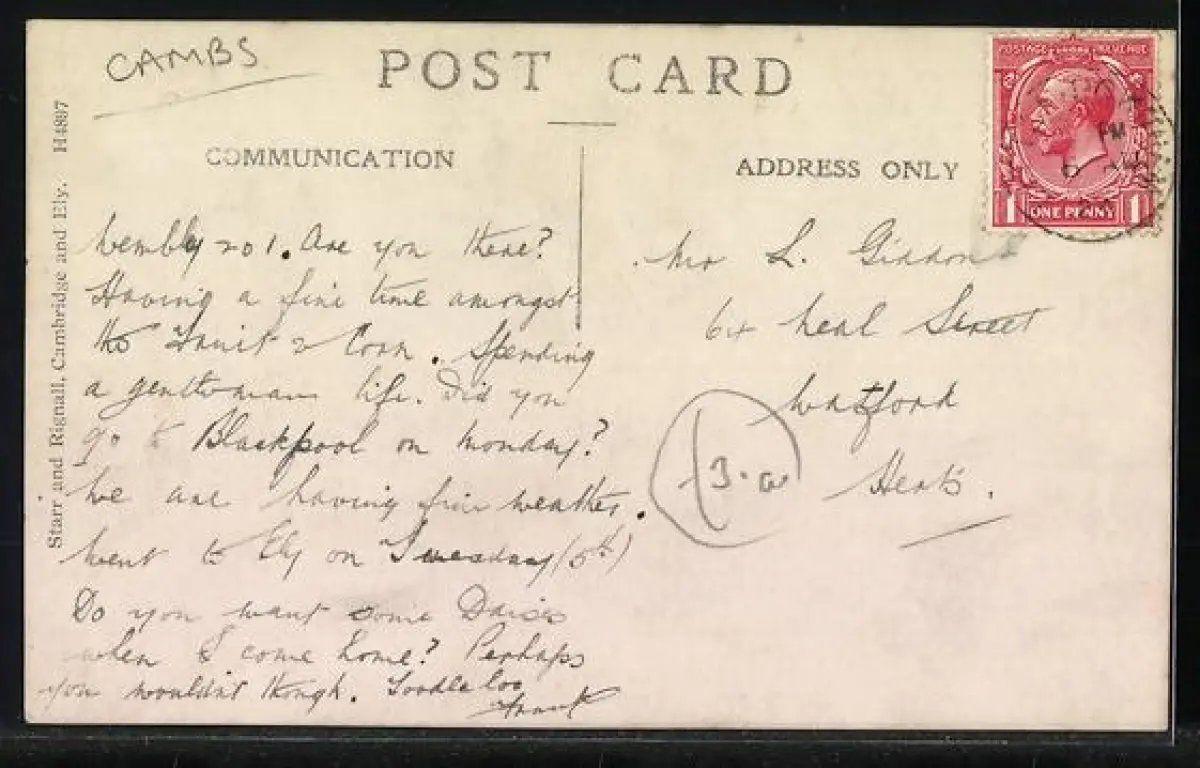 CAMBS
POST CARD
COMMUNICATION
ADDRESS ONLY
POSTAGE REVENUE
PM
1 ONE PENNY 1
Starr and Rignall, Cambridge and Ely. H4897
Wembly 201. Are you there?
Having a fine time amongst
the Fruit & Corn. Spending
a gentleman life. Did you
go to Blackpool on Monday?
We are having fine weather.
Went to Ely on Tuesday (5th)
Do you want some Daises
when I come home? Perhaps
you wouldn't though. Toodleloo
Frank
Mr L. Giddons
64 Neal Street
Watford
Herts.